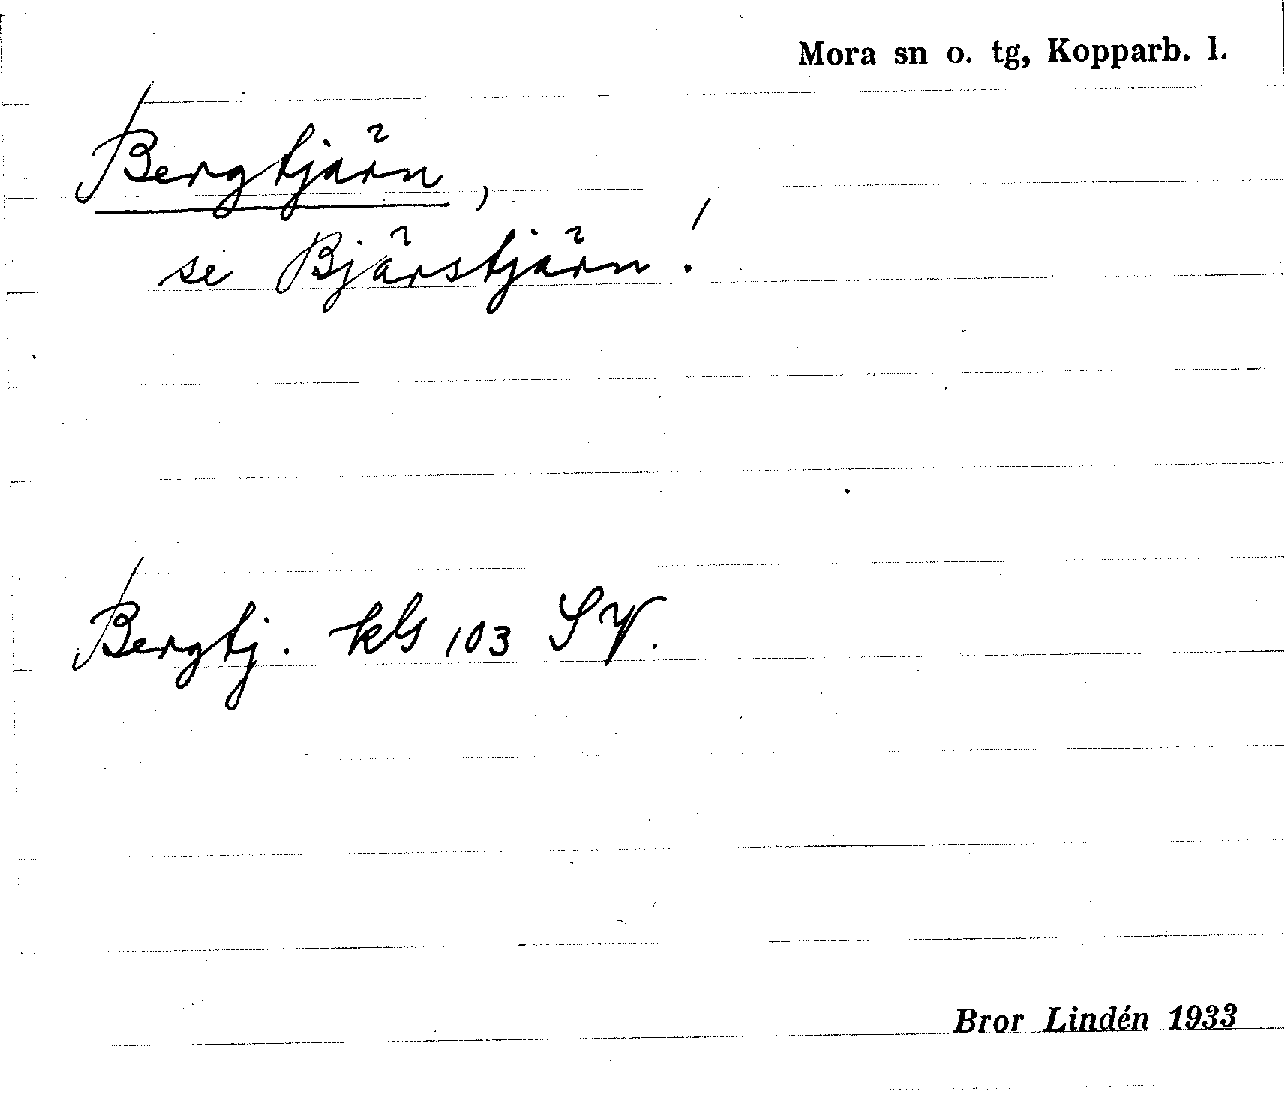 Mora sn o. tg, Kopparb. l.
Bergtjärn,
se Bjärstjärn!
Bergtj. kbl 103 SV.
Bror Lindén 1933